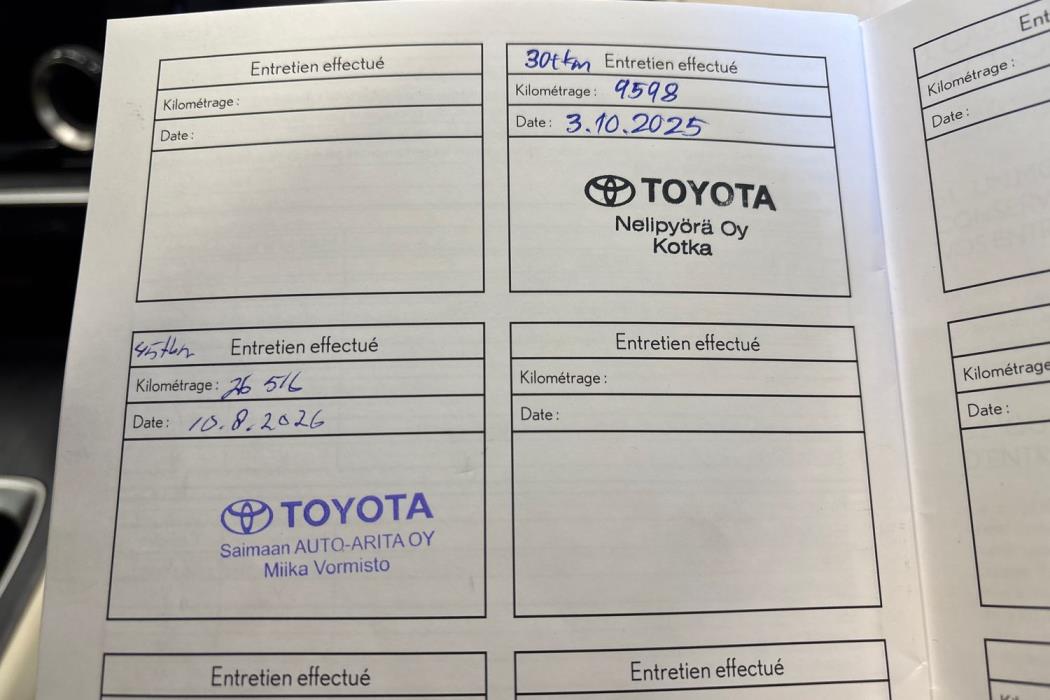 Entretien effectué
Kilométrage :
Date :
30tkm Entretien effectué
Kilométrage : 9598
Date : 3.10.2025
TOYOTA
Nelipyörä Oy
Kotka
45tkm Entretien effectué
Kilométrage : 26 516
Date : 10.8.2026
TOYOTA
Saimaan AUTO-ARITA OY
Miika Vormisto
Entretien effectué
Kilométrage :
Date :
Entretien effectué
Entretien effectué
Ent
Kilométrage :
Date :
Kilométrage
Date :